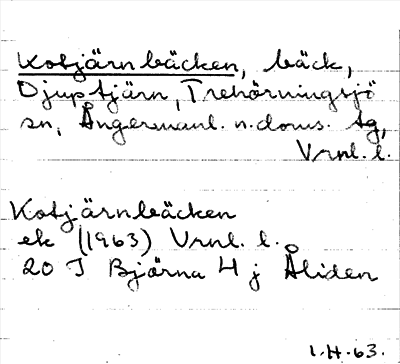 Kotjärnbäcken, bäck,
Djuptjärn, Trehörningsjö
sn, Ångermanl. n. doms. tg,
Vrnl. l.
Kotjärnbäcken
ek (1963) Vrnl. l.
20 I Björna 4 j Åliden
1.H.63.